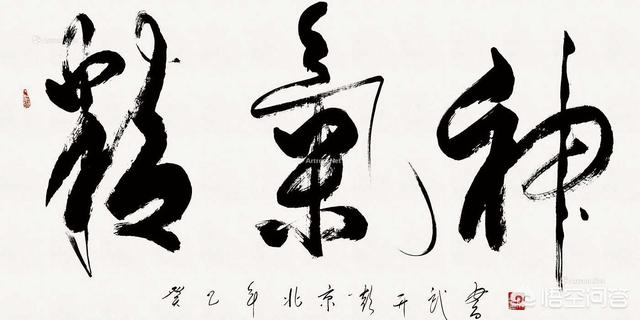 精氣神
癸巳年北京彭开武書
悟空问答